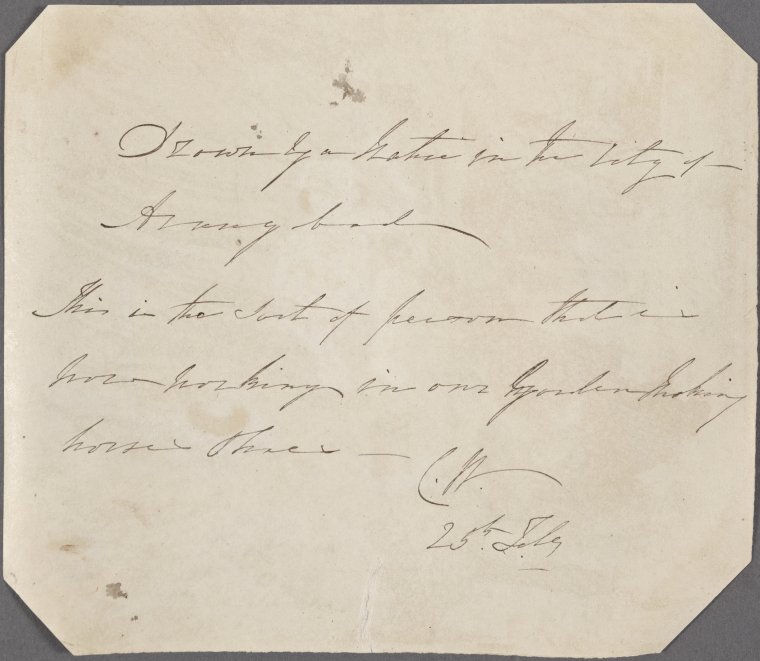 Drawn by a Native in the City of
Arungbad
This is the sort of person that is
now working in our Garden Making
horse shoes —
C.W.
25th Feby